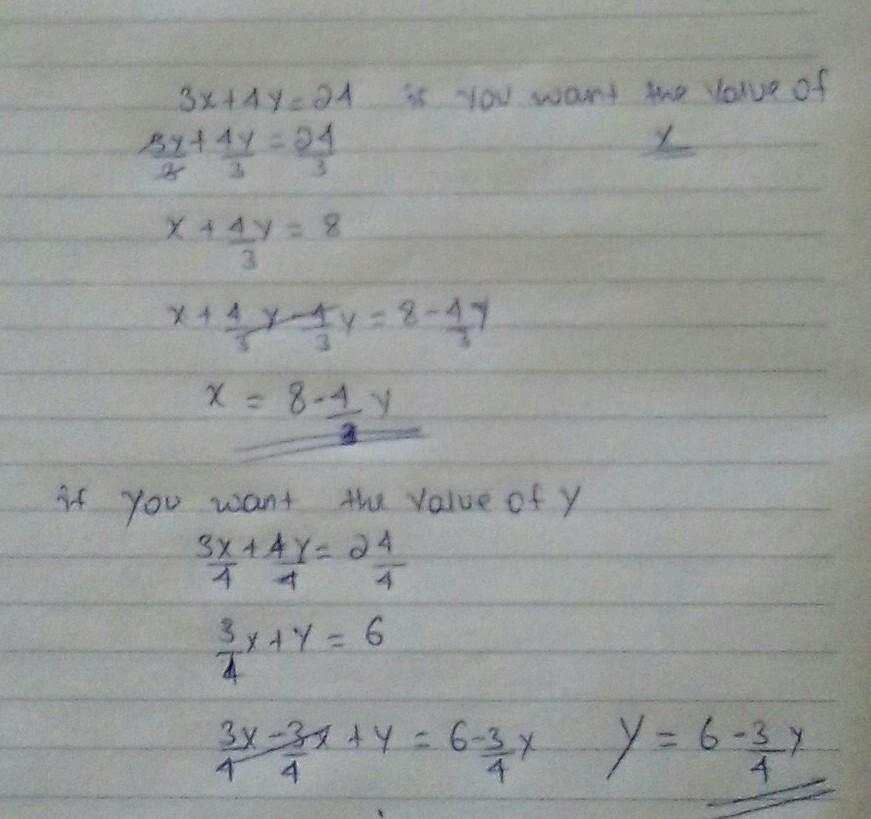 3x+4y=24 if you want the value of
x
3x/3 + 4y/3 = 24/3
x + 4/3 y = 8
x + 4/3 y - 4/3 y = 8 - 4/3 y
x = 8 - 4/3 y
if you want the value of y
3x/4 + 4y/4 = 24/4
3/4 x + y = 6
3x/4 - 3/4 x + y = 6 - 3/4 x y = 6 - 3/4 x